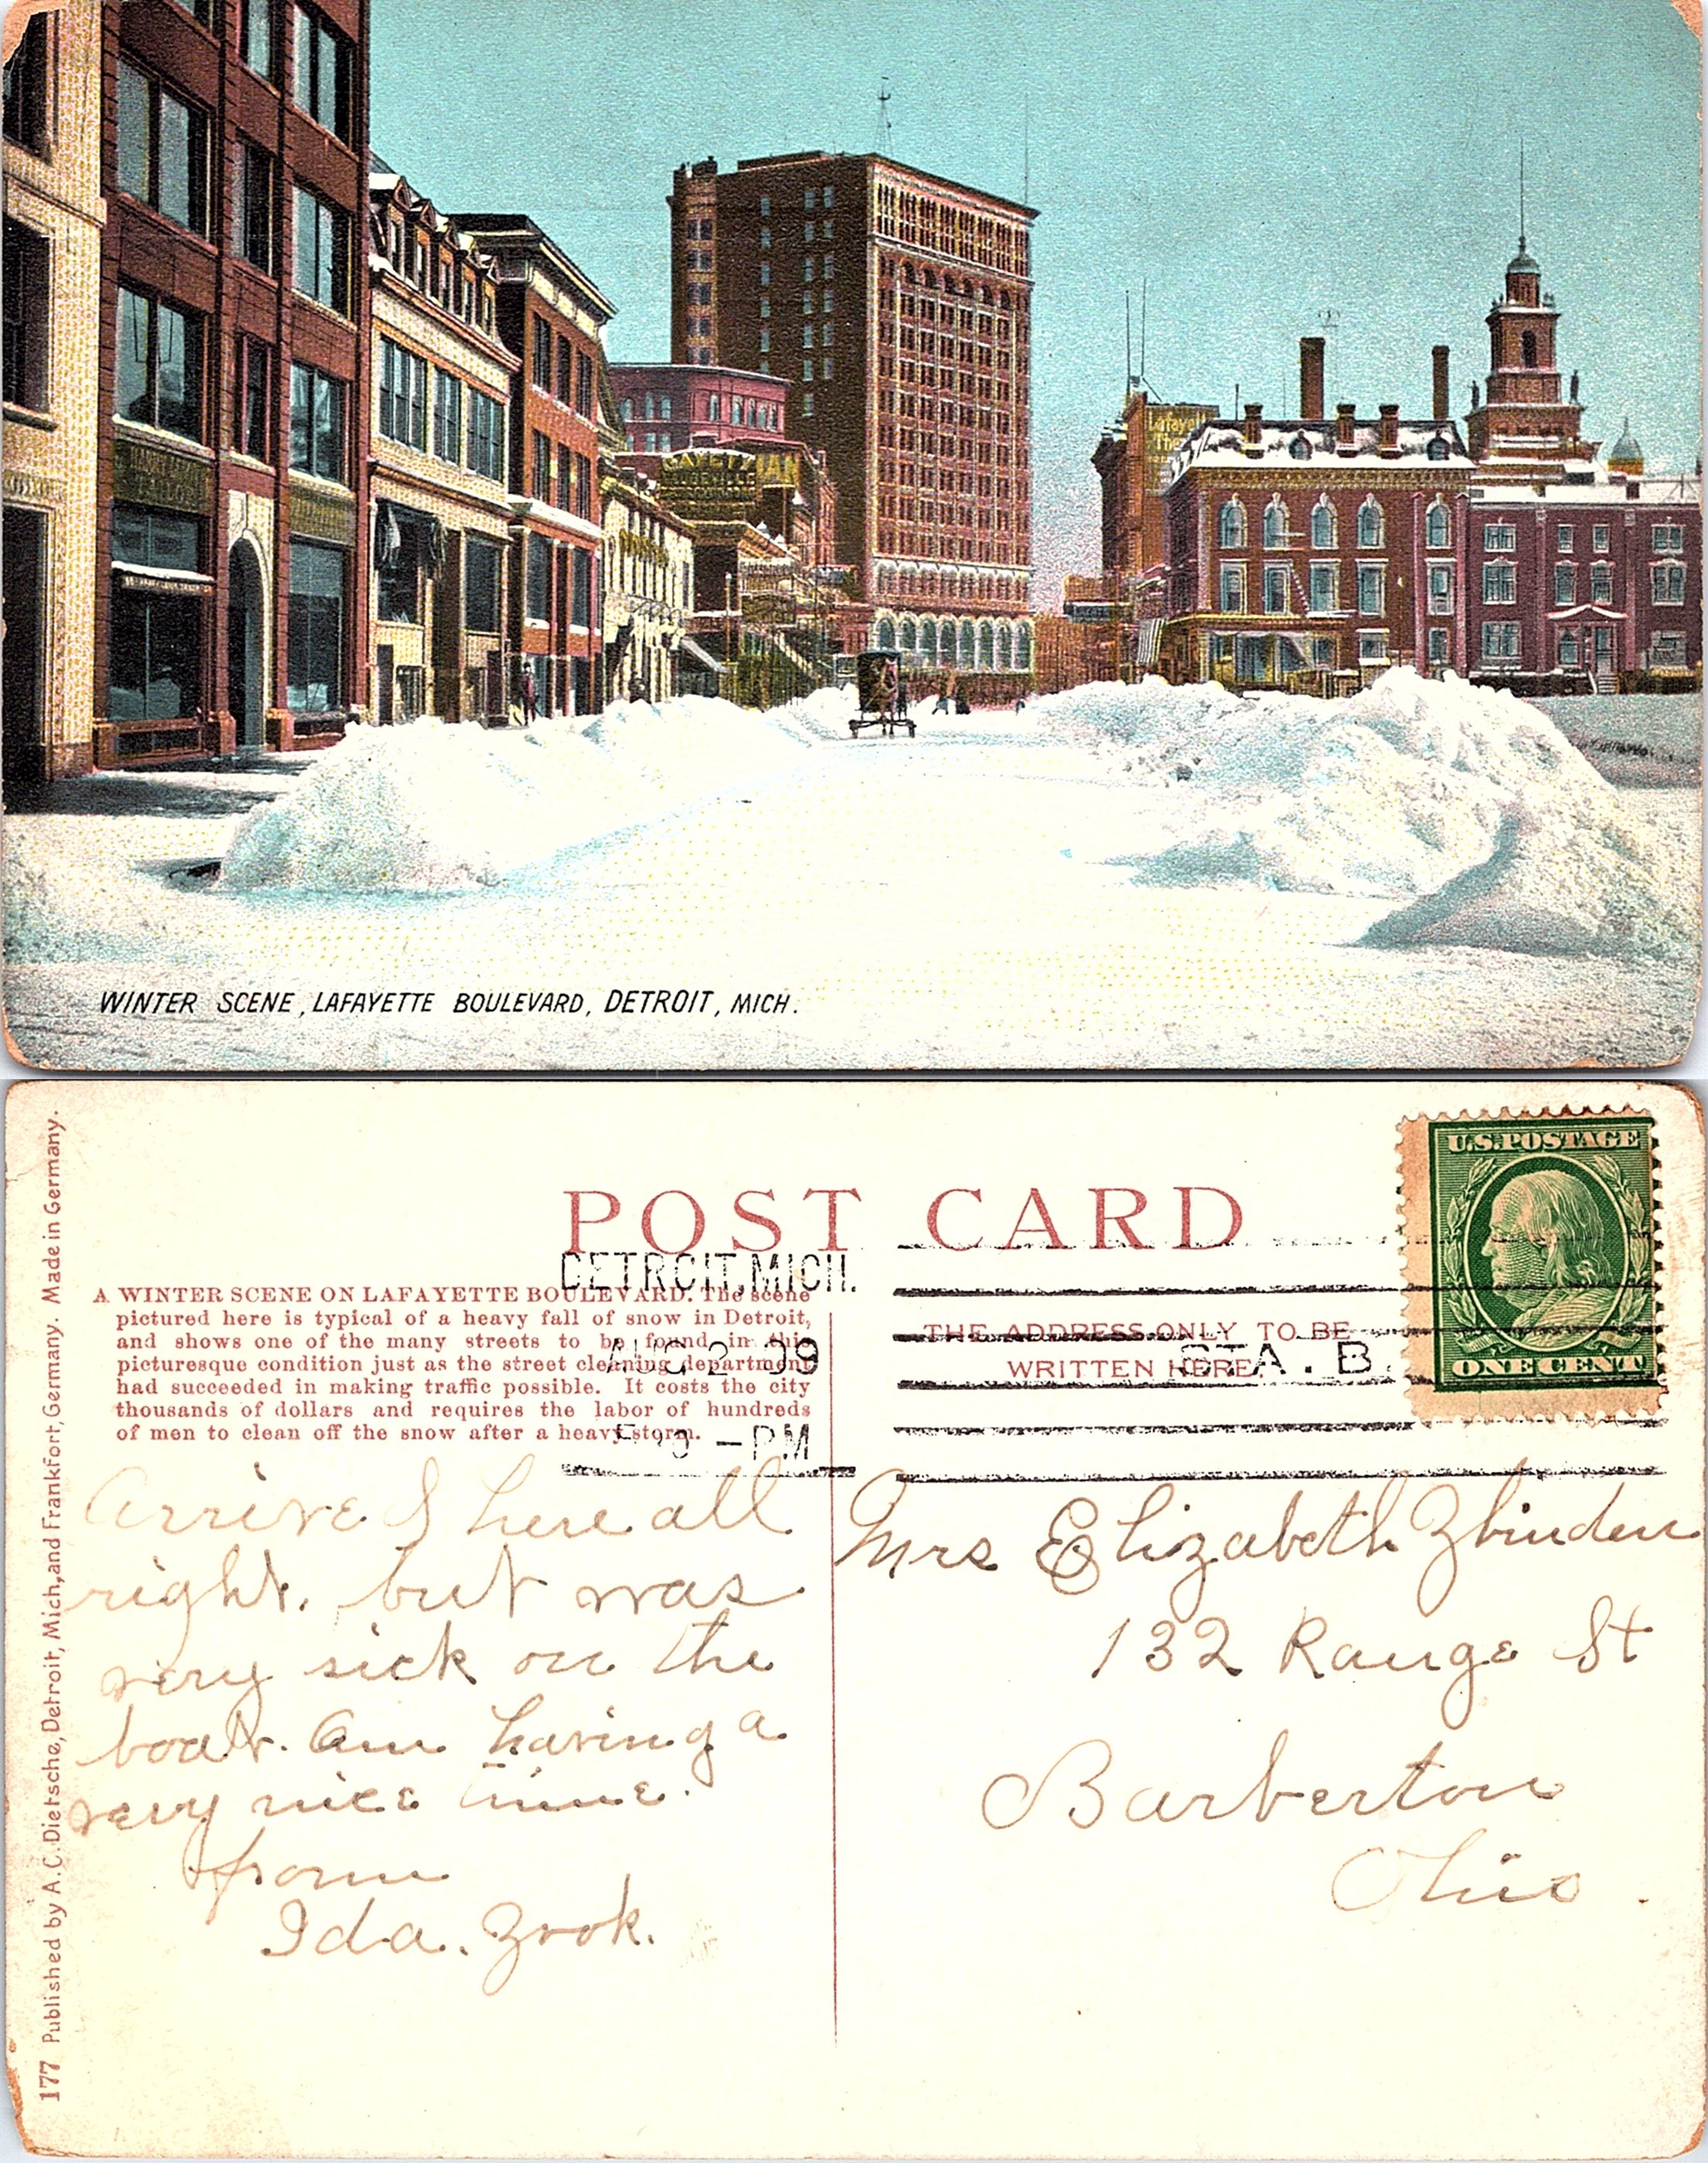 Lafayet
The
GAYETY
WINTER SCENE, LAFAYETTE BOULEVARD, DETROIT, MICH.
177 Published by A. C. Dietsche, Detroit, Mich., and Frankfort, Germany. Made in Germany.
POST CARD
U.S. POSTAGE
ONE CENT
DETROIT, MICH.
AUG 2 09
– PM
STA. B.
A WINTER SCENE ON LAFAYETTE BOULEVARD. The scene
pictured here is typical of a heavy fall of snow in Detroit,
and shows one of the many streets to be found in this
picturesque condition just as the street cleaning department
had succeeded in making traffic possible. It costs the city
thousands of dollars and requires the labor of hundreds
of men to clean off the snow after a heavy storm.
THE ADDRESS ONLY TO BE
WRITTEN HERE.
Arrive I here all
right. but was
very sick on the
boat. Am having a
very nice time.
from
Ida. Zook.
Mrs Elizabeth Zbinden
132 Range St
Barberton
Ohio.